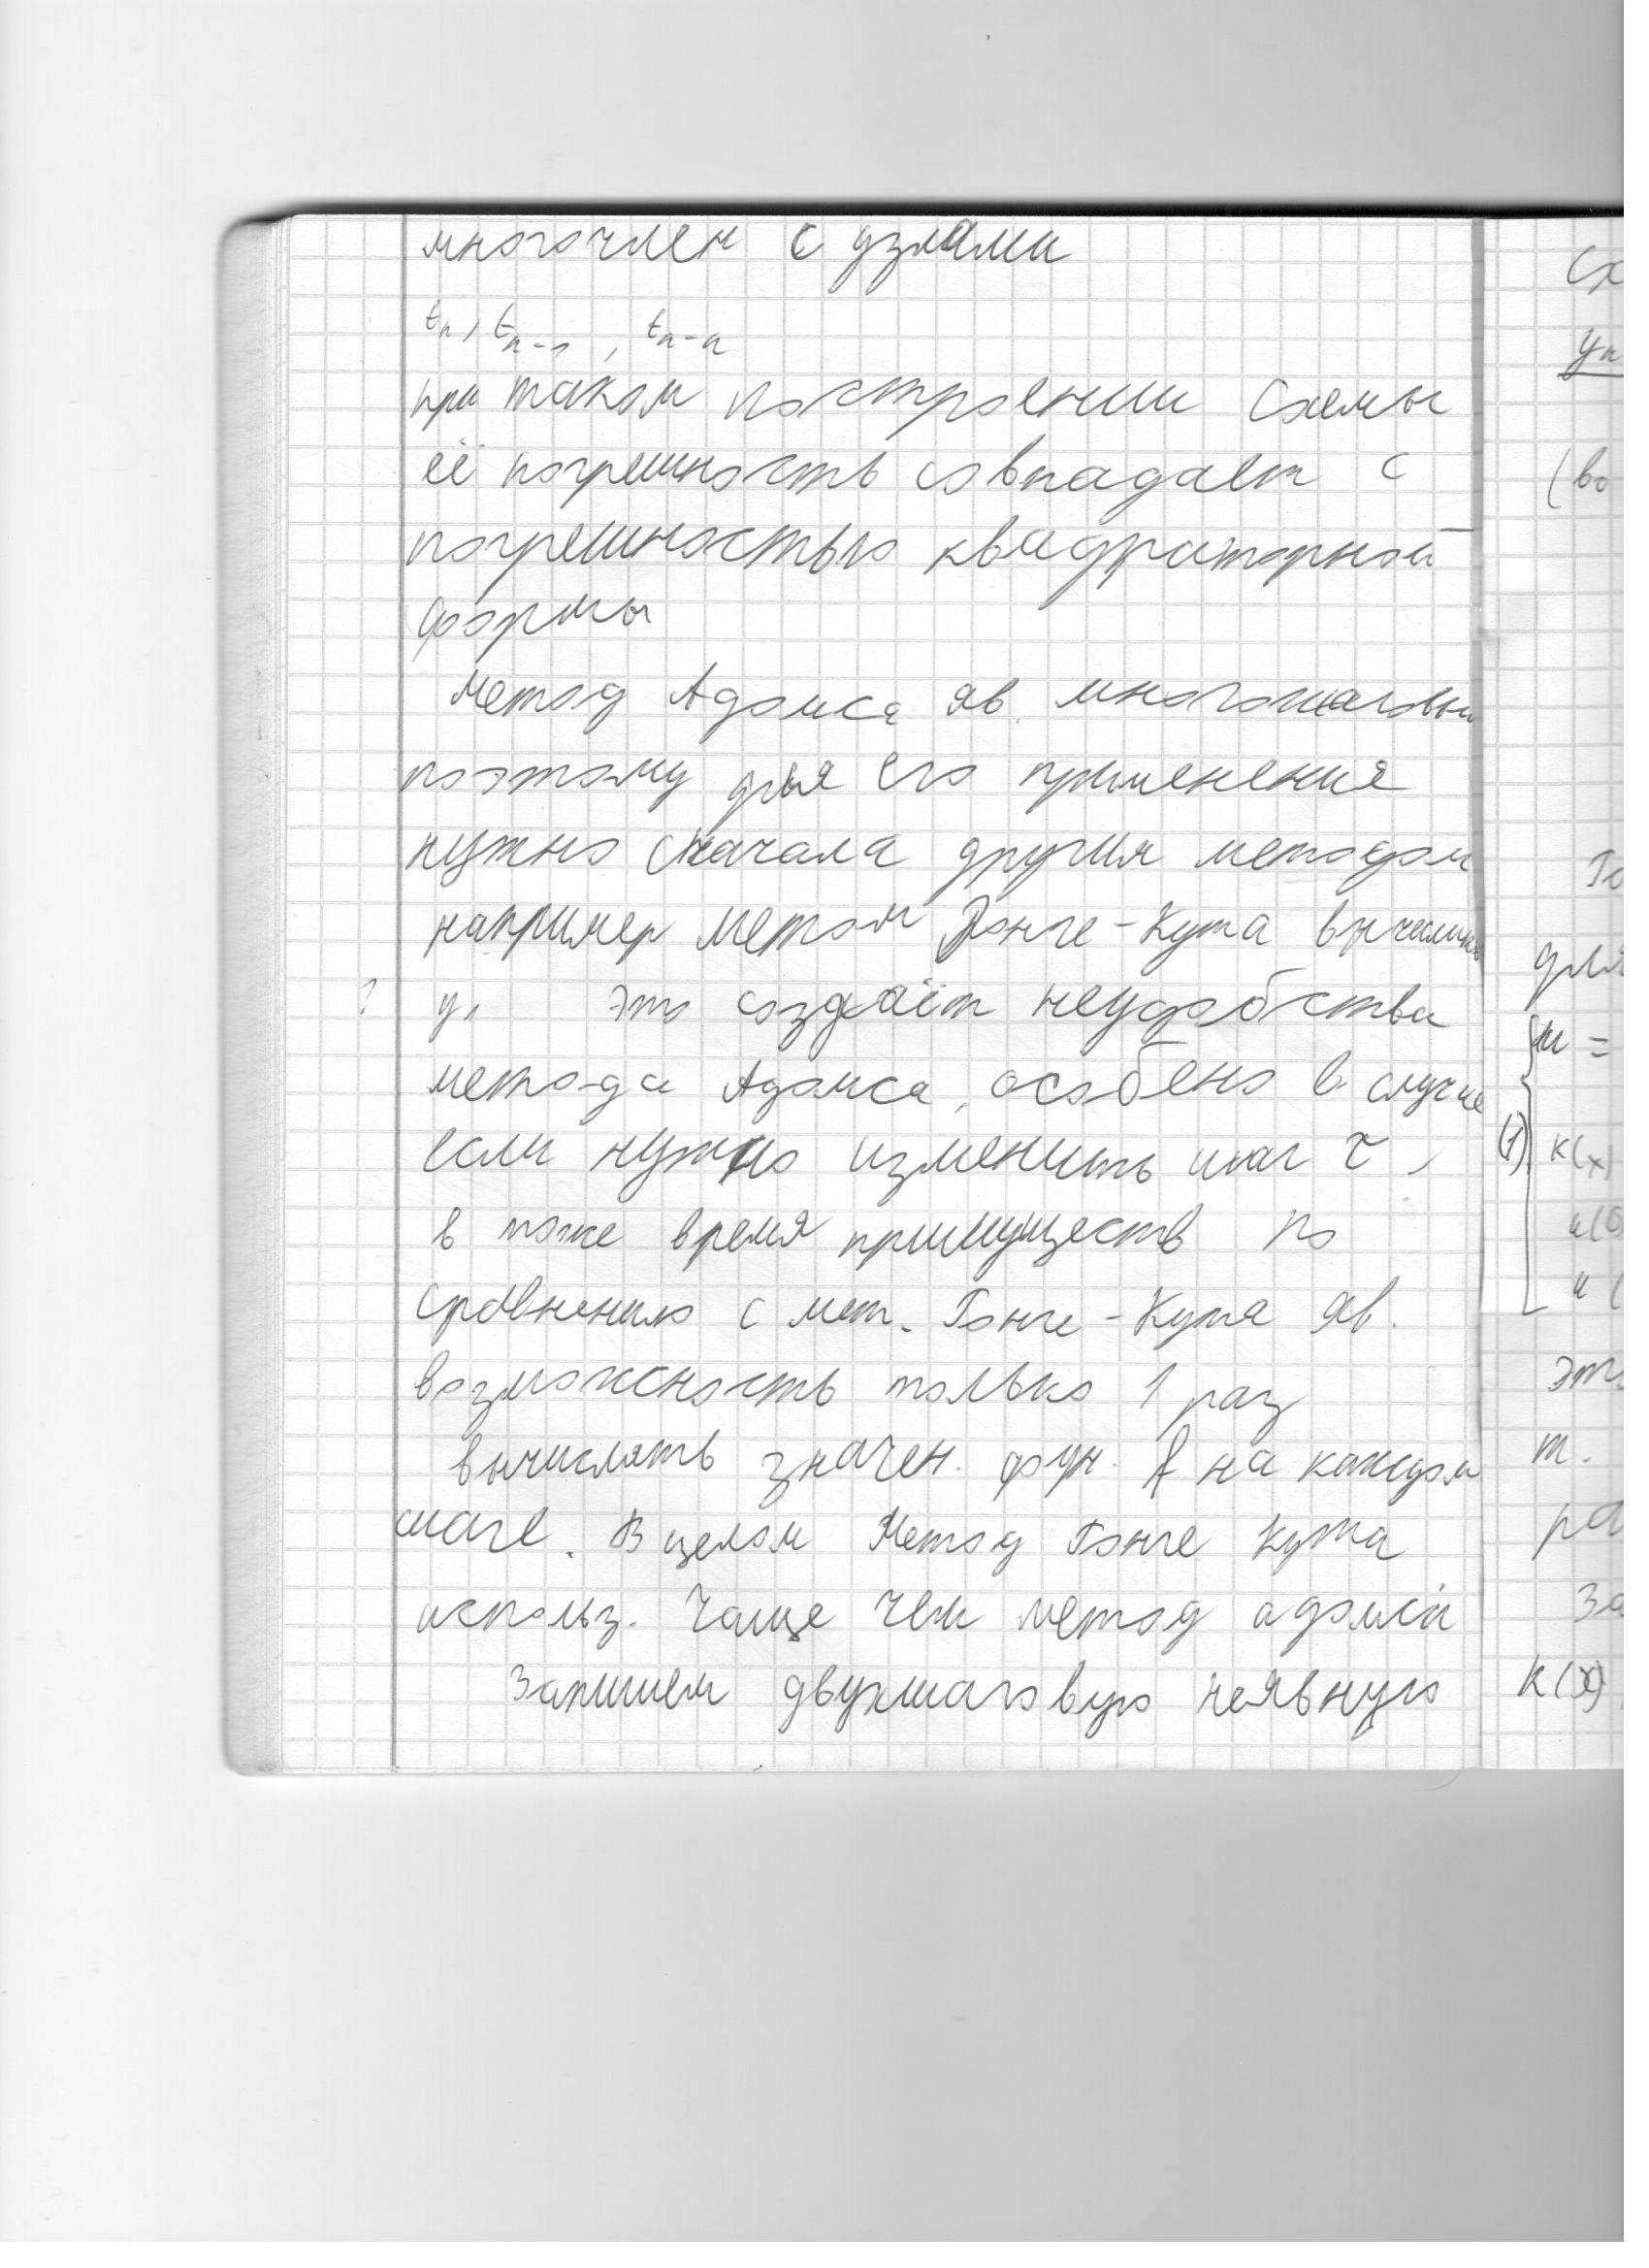 многочлен с узлами
tₙ, tₙ₋₁, tₙ₋ₙ
при таком построении схемы
её погрешность совпадает с
погрешностью квадраторной
формы
Метод Адамса яв. многошаговым
поэтому для его применения
нужно сначала другим методом
например Метом Ронге-Кута вычислить
? y₁ это создаёт неудобства
метода Адамса, особено в случае
если нужно изменить шаг τ,
в тоже время примуществ по
сравнению с мет. Гонге-Кута яв.
возможность только 1 раз
вычислять значен. фун. f на каждом
шаге. В целом Метод Гонге Кута
использ. Чаще чем метод адомса
Запишем двухшаговую неявную
Сх
yn
(во
для
(1)
k(x)
u(0
u (
это
т.
ра
За
k(x)